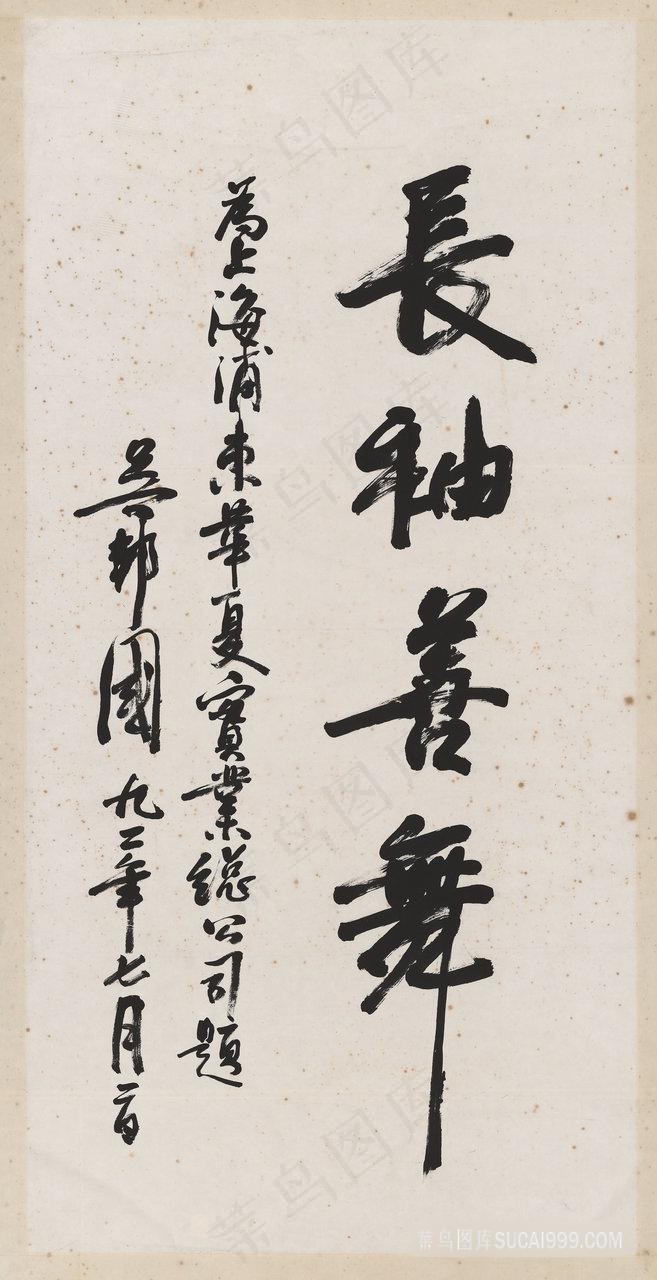 長袖善舞
為上海浦東華夏實業總公司題
吳邦國 九二年七月一日
菜鸟图库SUCAI999.COM